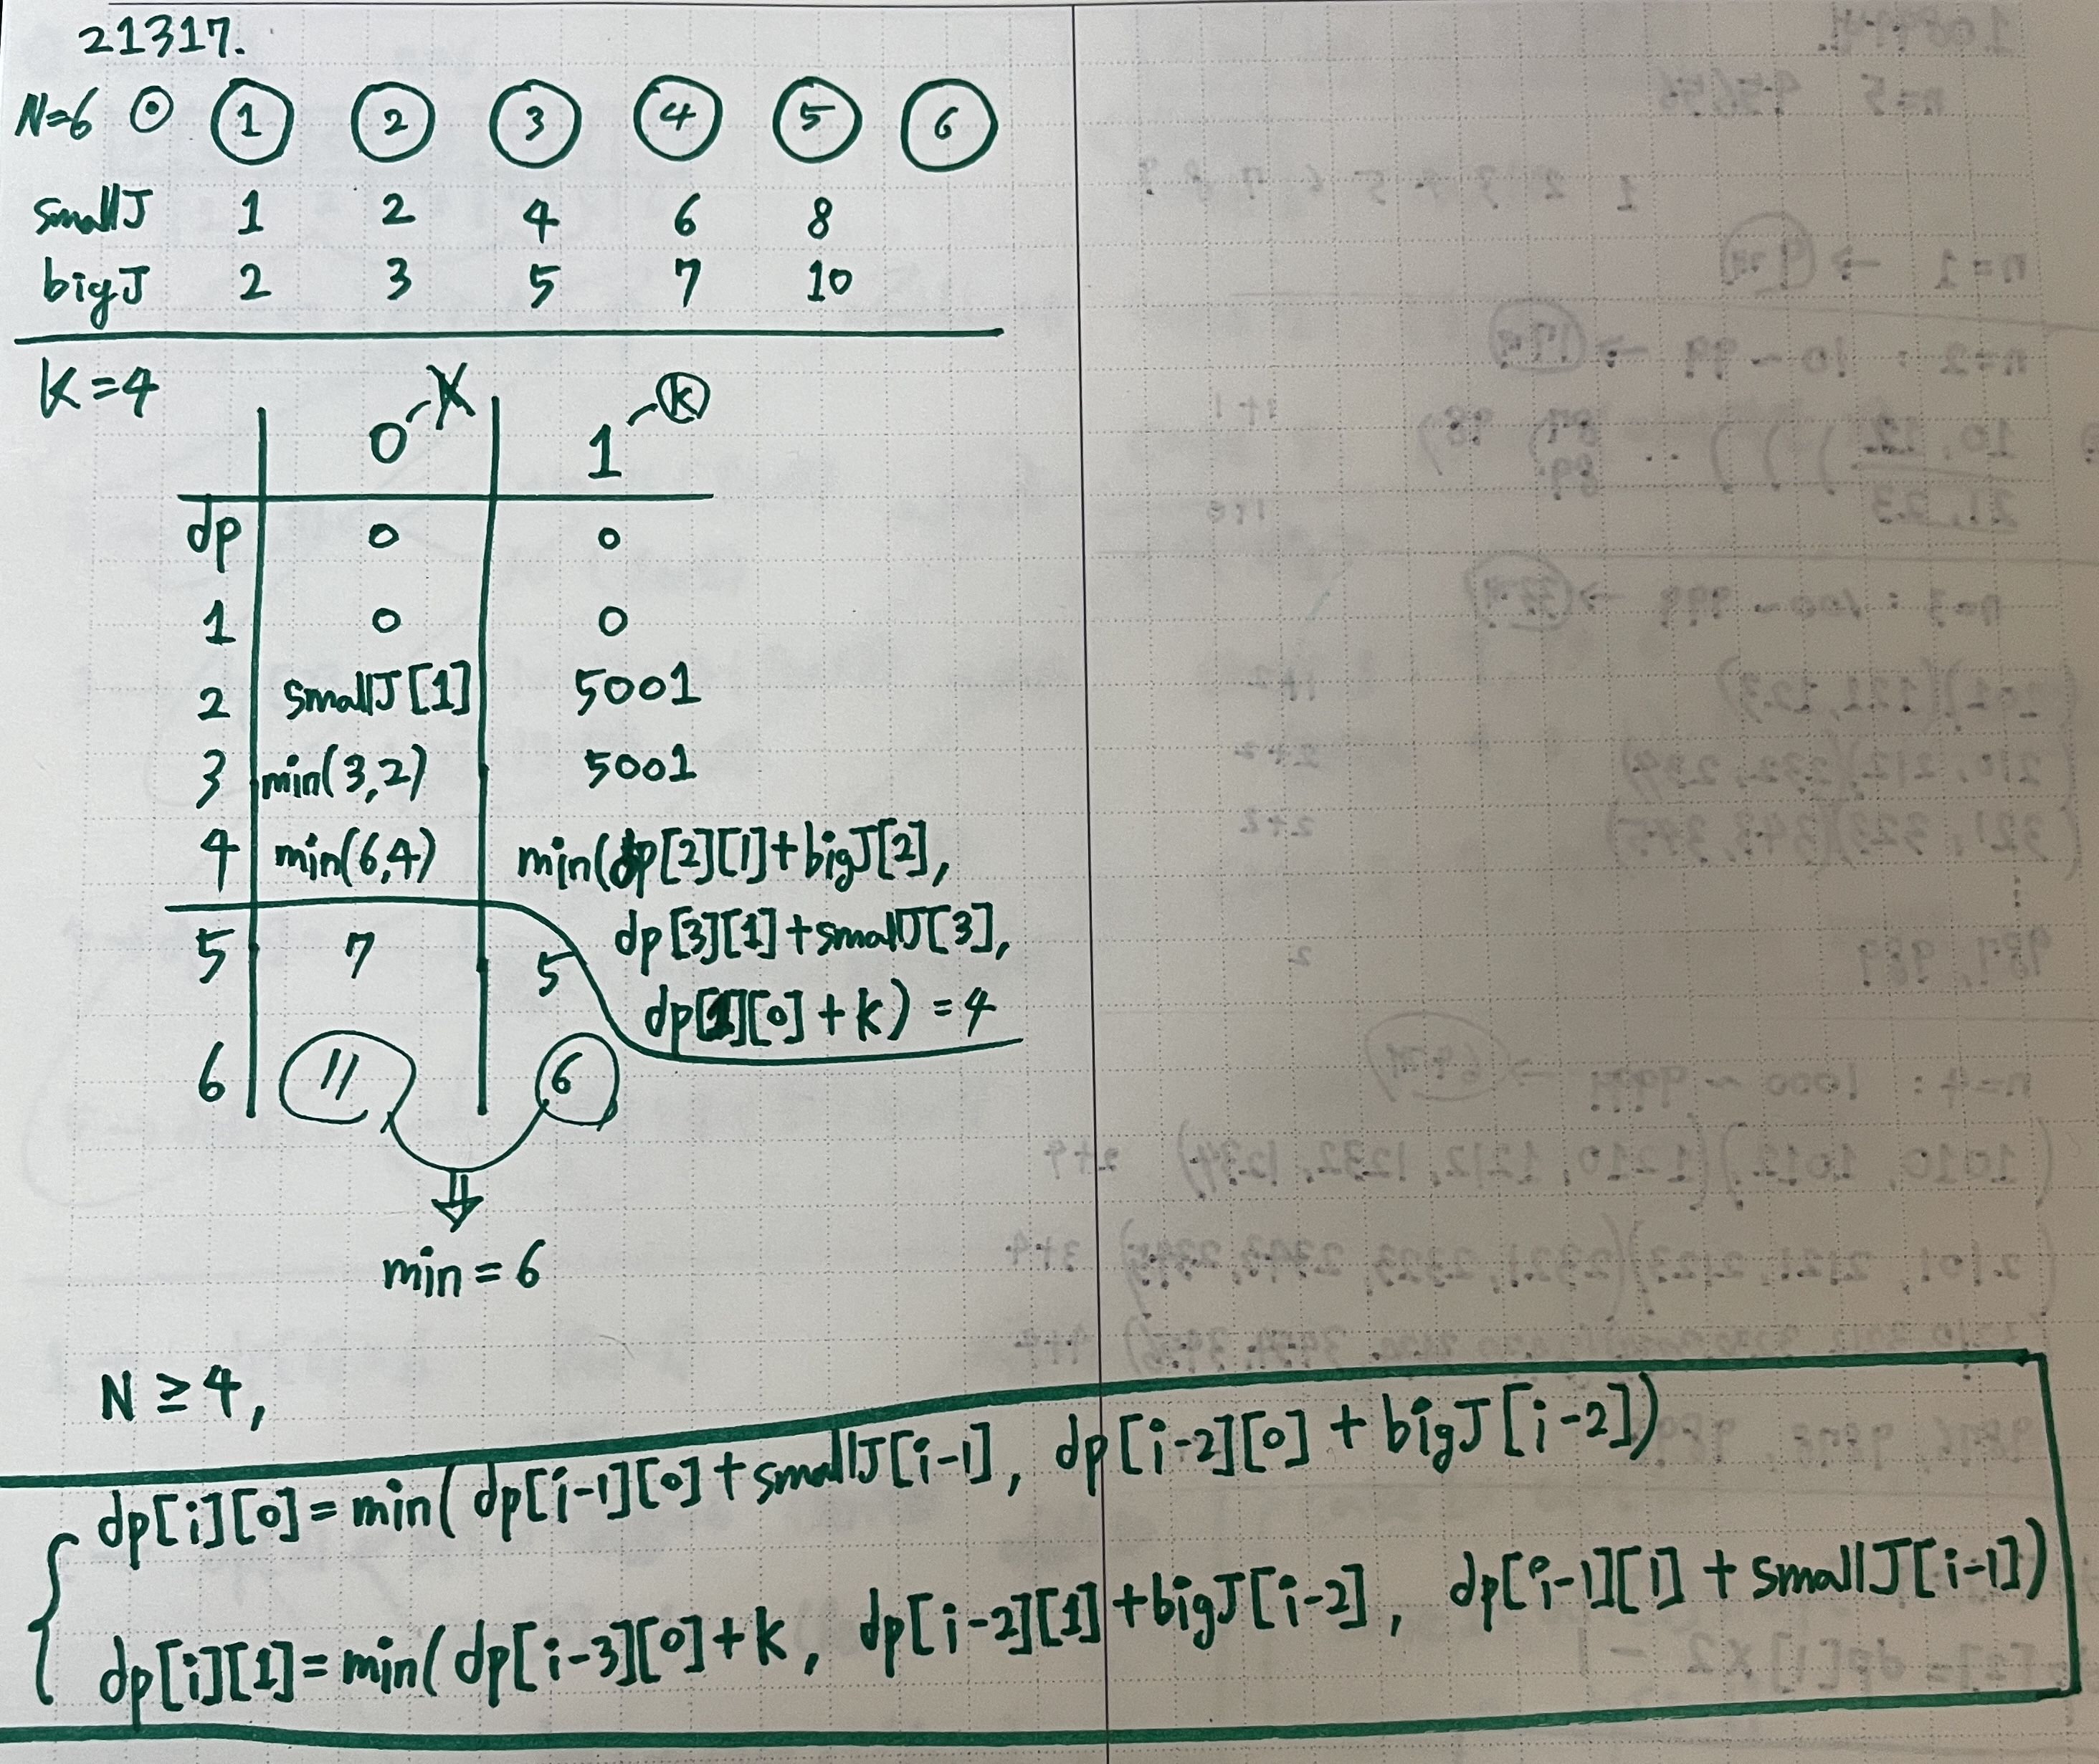 21317.
N=6 0 1 2 3 4 5 6
smallJ 1 2 4 6 8
bigJ 2 3 5 7 10
K=4
X k
0 1
dp 0 0
1 0 0
2 smallJ[1] 5001
3 min(3,2) 5001
4 min(6,4) min(dp[2][1]+bigJ[2],
dp[3][1]+smallJ[3],
dp[1][0]+k)=4
5 7 5
6 11 6
⇓
min=6
N≥4,
dp[i][0]=min(dp[i-1][0]+smallJ[i-1], dp[i-2][0]+bigJ[i-2])
dp[i][1]=min(dp[i-3][0]+k, dp[i-2][1]+bigJ[i-2], dp[i-1][1]+smallJ[i-1])